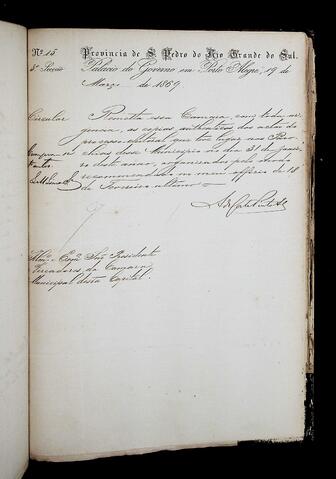 Nº 15
Provincia de S. Pedro do Rio Grande do Sul.
3ª Secção
Palacio do Governo em Porto Alegre, 19 de
Março de 1869
Circular
Remetta essa Camara, com toda ur
gencia, as copias authenticas das actas do
processo eleitoral que teve lugar nas Paro
chias desse Municipio no dia 31 de Janei
ro deste anno, organisadas pelo modo
recommendado no meu officio de 18
de Fevereiro ultimo
Illmos e Senrs Presidente
Vereadores da Camara
Municipal desta Capital.